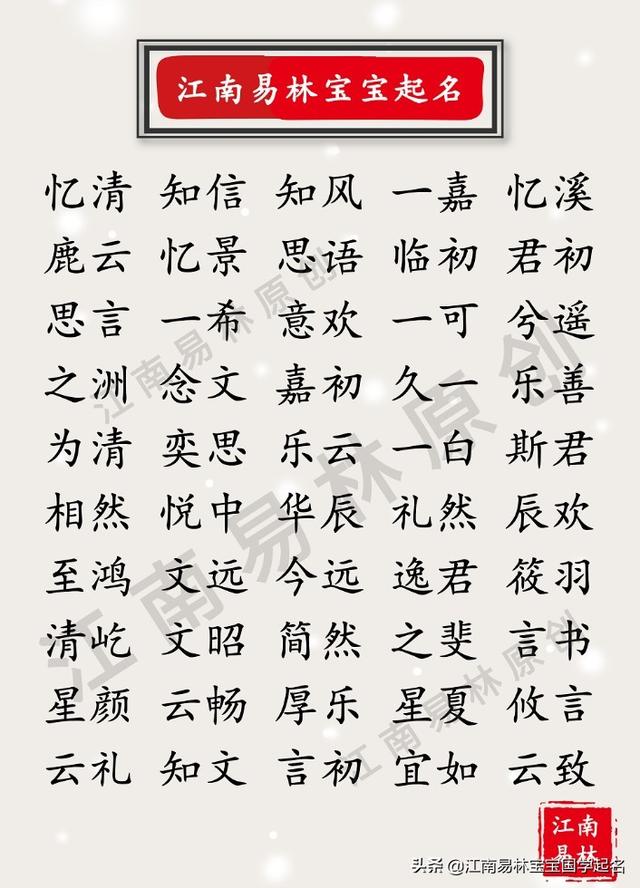 江南易林宝宝起名
忆清 知信 知风 一嘉 忆溪
鹿云 忆景 思语 临初 君初
思言 一希 意欢 一可 兮遥
之洲 念文 嘉初 久一 乐善
为清 奕思 乐云 一白 斯君
相然 悦中 华辰 礼然 辰欢
至鸿 文远 今远 逸君 筱羽
清屹 文昭 简然 之斐 言书
星颜 云畅 厚乐 星夏 攸言
云礼 知文 言初 宜如 云致
江南易林原创
江南易林原创
江南易林原创
江南
易林
头条 @江南易林宝宝国学起名